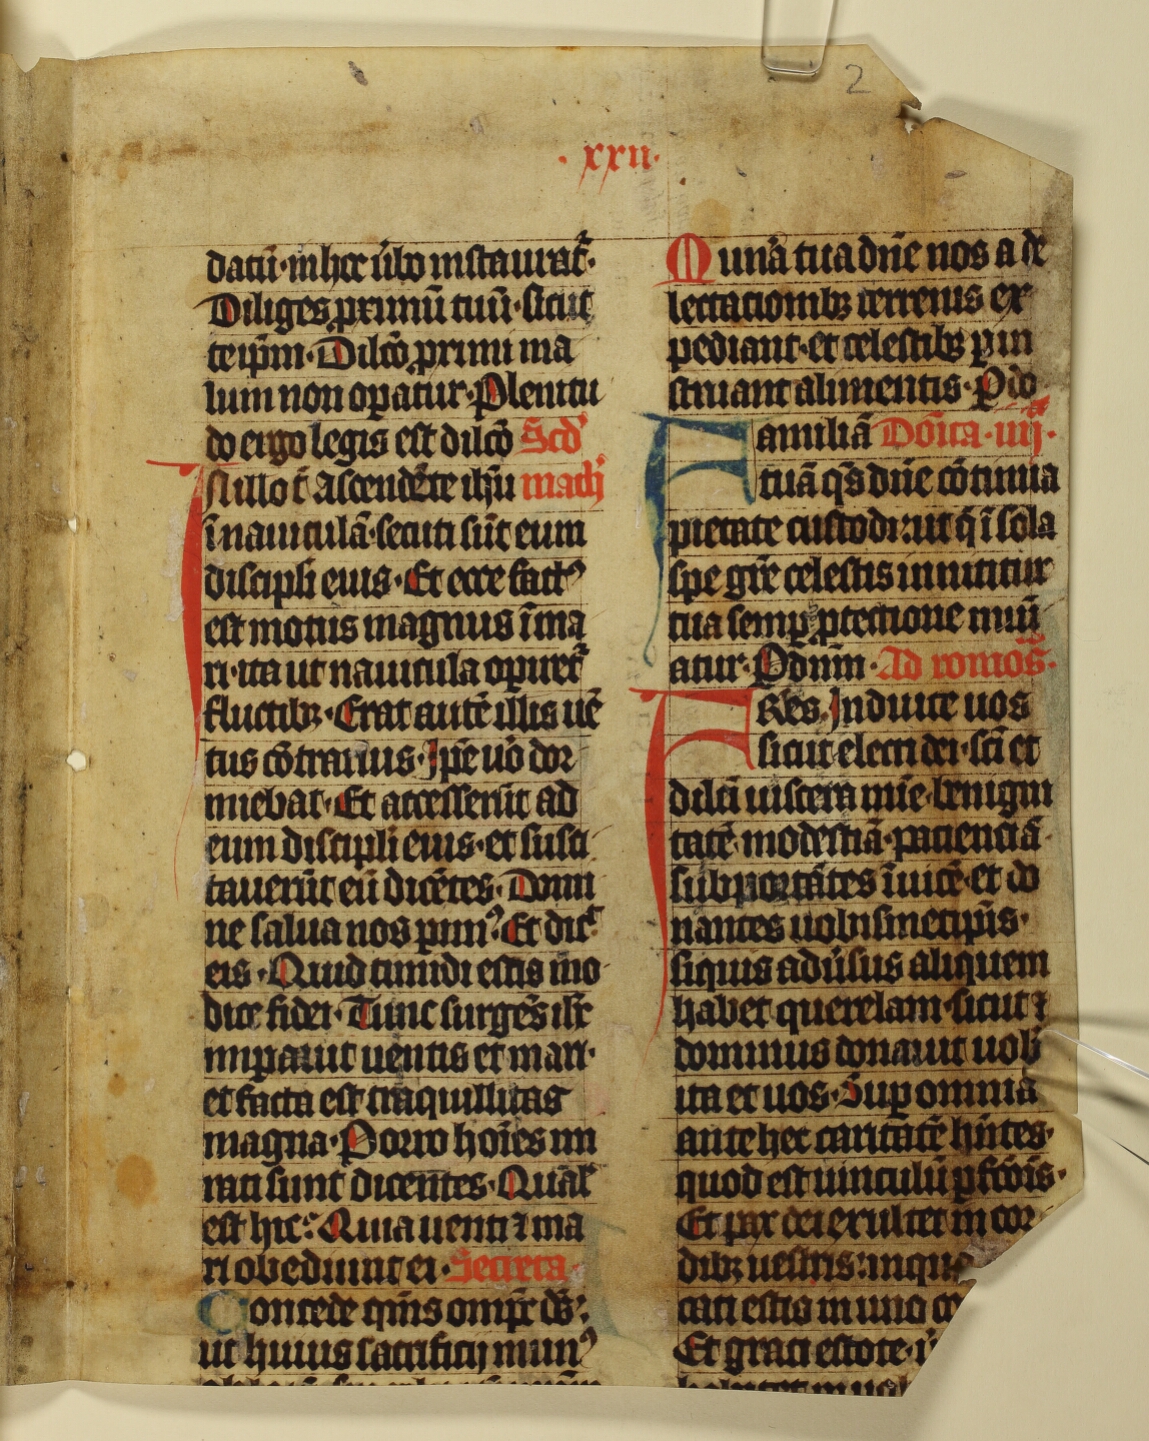 2
· xxii ·
datū · in hoc ūbo instaurat᷑ ·
Diliges ꝓximū tuū · sicut
teip̄m · Dilcō ꝓximi ma
lum non opatur · Plenitu
do ergo legis est dilcō Scd'
In illo t̄ Ascendēte ihū math'
ī nauiculā · secuti sūt eum
discipli eius · Et ecce fact᷒
est motus magnus ī ma
ri · ita ut nauicula opiret᷑
fluctibꝫ · Erat autē illis uē
tus cōtrarius · Ipe uō dor
miebat · Et accesserūt ad
eum discipli eius · et susci
tauerūt eū dicētes · Domi
ne salua nos pim᷒ · Et dic̄
eis · Quid timidi estis mo
dice fidei · Tunc surgēs ihc
impauit uentis et mari ·
et facta est trāquillitas
magna · Porro hoīes mi
rati sunt dicentes · Qual'
est hic · Quia uenti ⁊ ma
ri obediunt ei · Secreta ·
Concede qm̄s omp̄c ds :
ut huius sacrificij mun᷒
Munā tua dn̄e nos a de
lectacionibꝫ terrenis ex
pediant · et celestibꝫ ꝑ in
struant alimentis · P do
Familiā Dōica · iiij ·
tuā qs̄ dn̄e cōtinua
pietate custodi : ut q̄ ī sola
spe grē celestis innititur
tua semꝑ ꝓtectione muī
atur · P dnm̄ · Ad romōs ·
FRēs · Induite uos
sicut electi dei · scī et
dilcī uiscera mīe · benigni
tatē · modestiā · pacienciā ·
subportātes īuicē · et do
nantes uobismetipīs ·
siquis adūsus aliquem
habet querelam · sicut ⁊
dominus donauit uob'
ita et uos · Suꝑ omnia
ante hec caritatē hn̄tes ·
quod est uinculū ꝑfcōis ·
Et pax dei exultet in cor
dibꝫ uestris : in qua
cati estis in uno co
Et grati estote ·